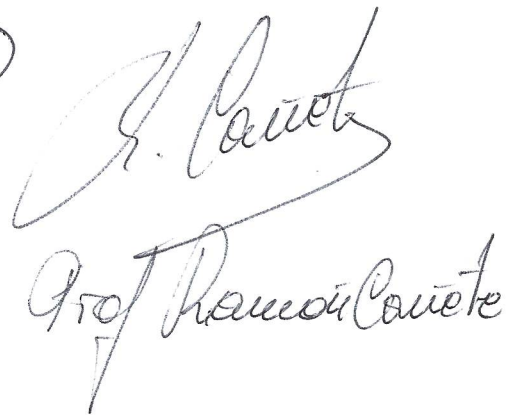 R. Cañete
Prof Ramon Cañete